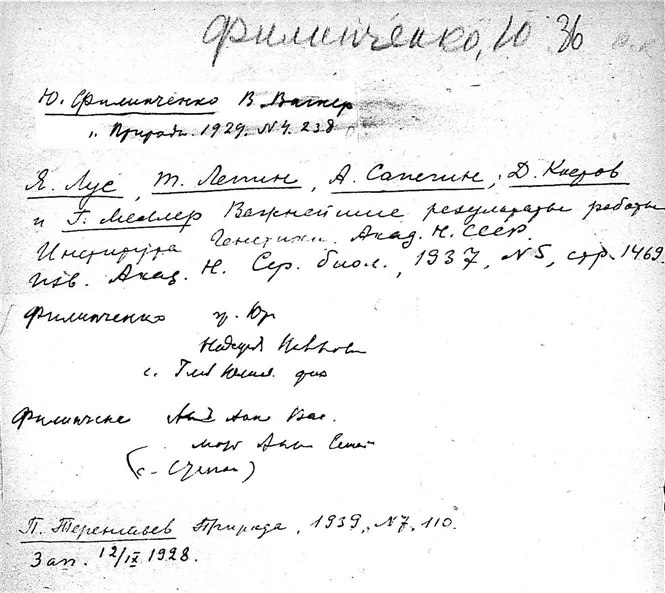 Филипченко, Ю 36
Ю. Филипченко В. Вагнер
" Природа. 1929. N4. 238
Я. Лус, Т. Лепин, А. Сапегин, Д. Костов
и Г. Меллер Важнейшие результаты работы
Института Генетики Акад. Н. СССР.
Изв. Акад. Н. Сер. биол., 1937, N5, стр. 1469.
Филипченко
с. Глеб
Филипченко
(с. Степан)
П. Терентьев Природа, 1939, N7, 110.
Зап. 12/IX 1928.